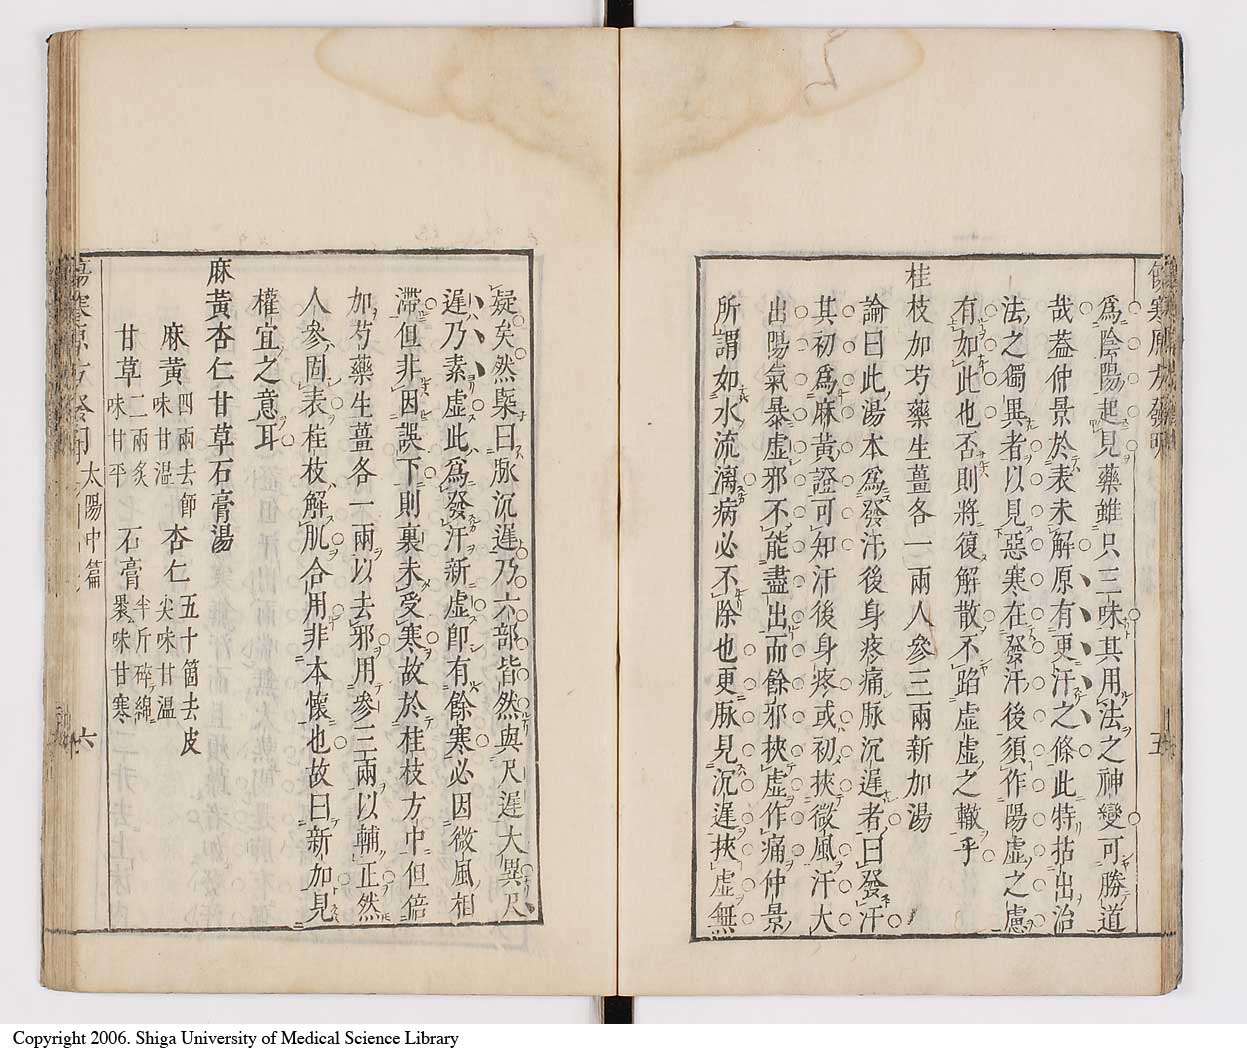 為陰陽起見藥雖只三味其用法之神變可勝道
哉葢仲景於表未解原有更汗之條此特拈出治
法之獨異者以見惡寒在發汗後須作陽虛之慮
有如此也否則將復解散不蹈虛虛之轍乎
桂枝加芍藥生薑各一兩人參三兩新加湯
論曰此湯本為發汗後身疼痛脉沉遲者曰發汗
其初為麻黃證可知汗後身疼或初挾微風汗大
出陽氣暴虛邪不能盡出而餘邪挾虛作痛仲景
所謂如水流漓病必不除也更脉見沉遲挾虛無
疑矣然槩曰脉沉遲乃六部皆然與尺遲大異尺
遲乃素虛此為發汗新虛即有餘寒必因微風相
滯但非因誤下則裏未受寒故於桂枝方中但倍
加芍藥生薑各一兩以去邪用參三兩以輔正然
人參固表桂枝解肌合用非本懷也故曰新加見
權宜之意耳
麻黃杏仁甘草石膏湯
麻黃 四兩去節味甘温 杏仁 五十箇去皮尖味甘温
甘草 二兩炙味甘平 石膏 半斤碎綿裹味甘寒
太陽中篇
六
五
Copyright 2006. Shiga University of Medical Science Library